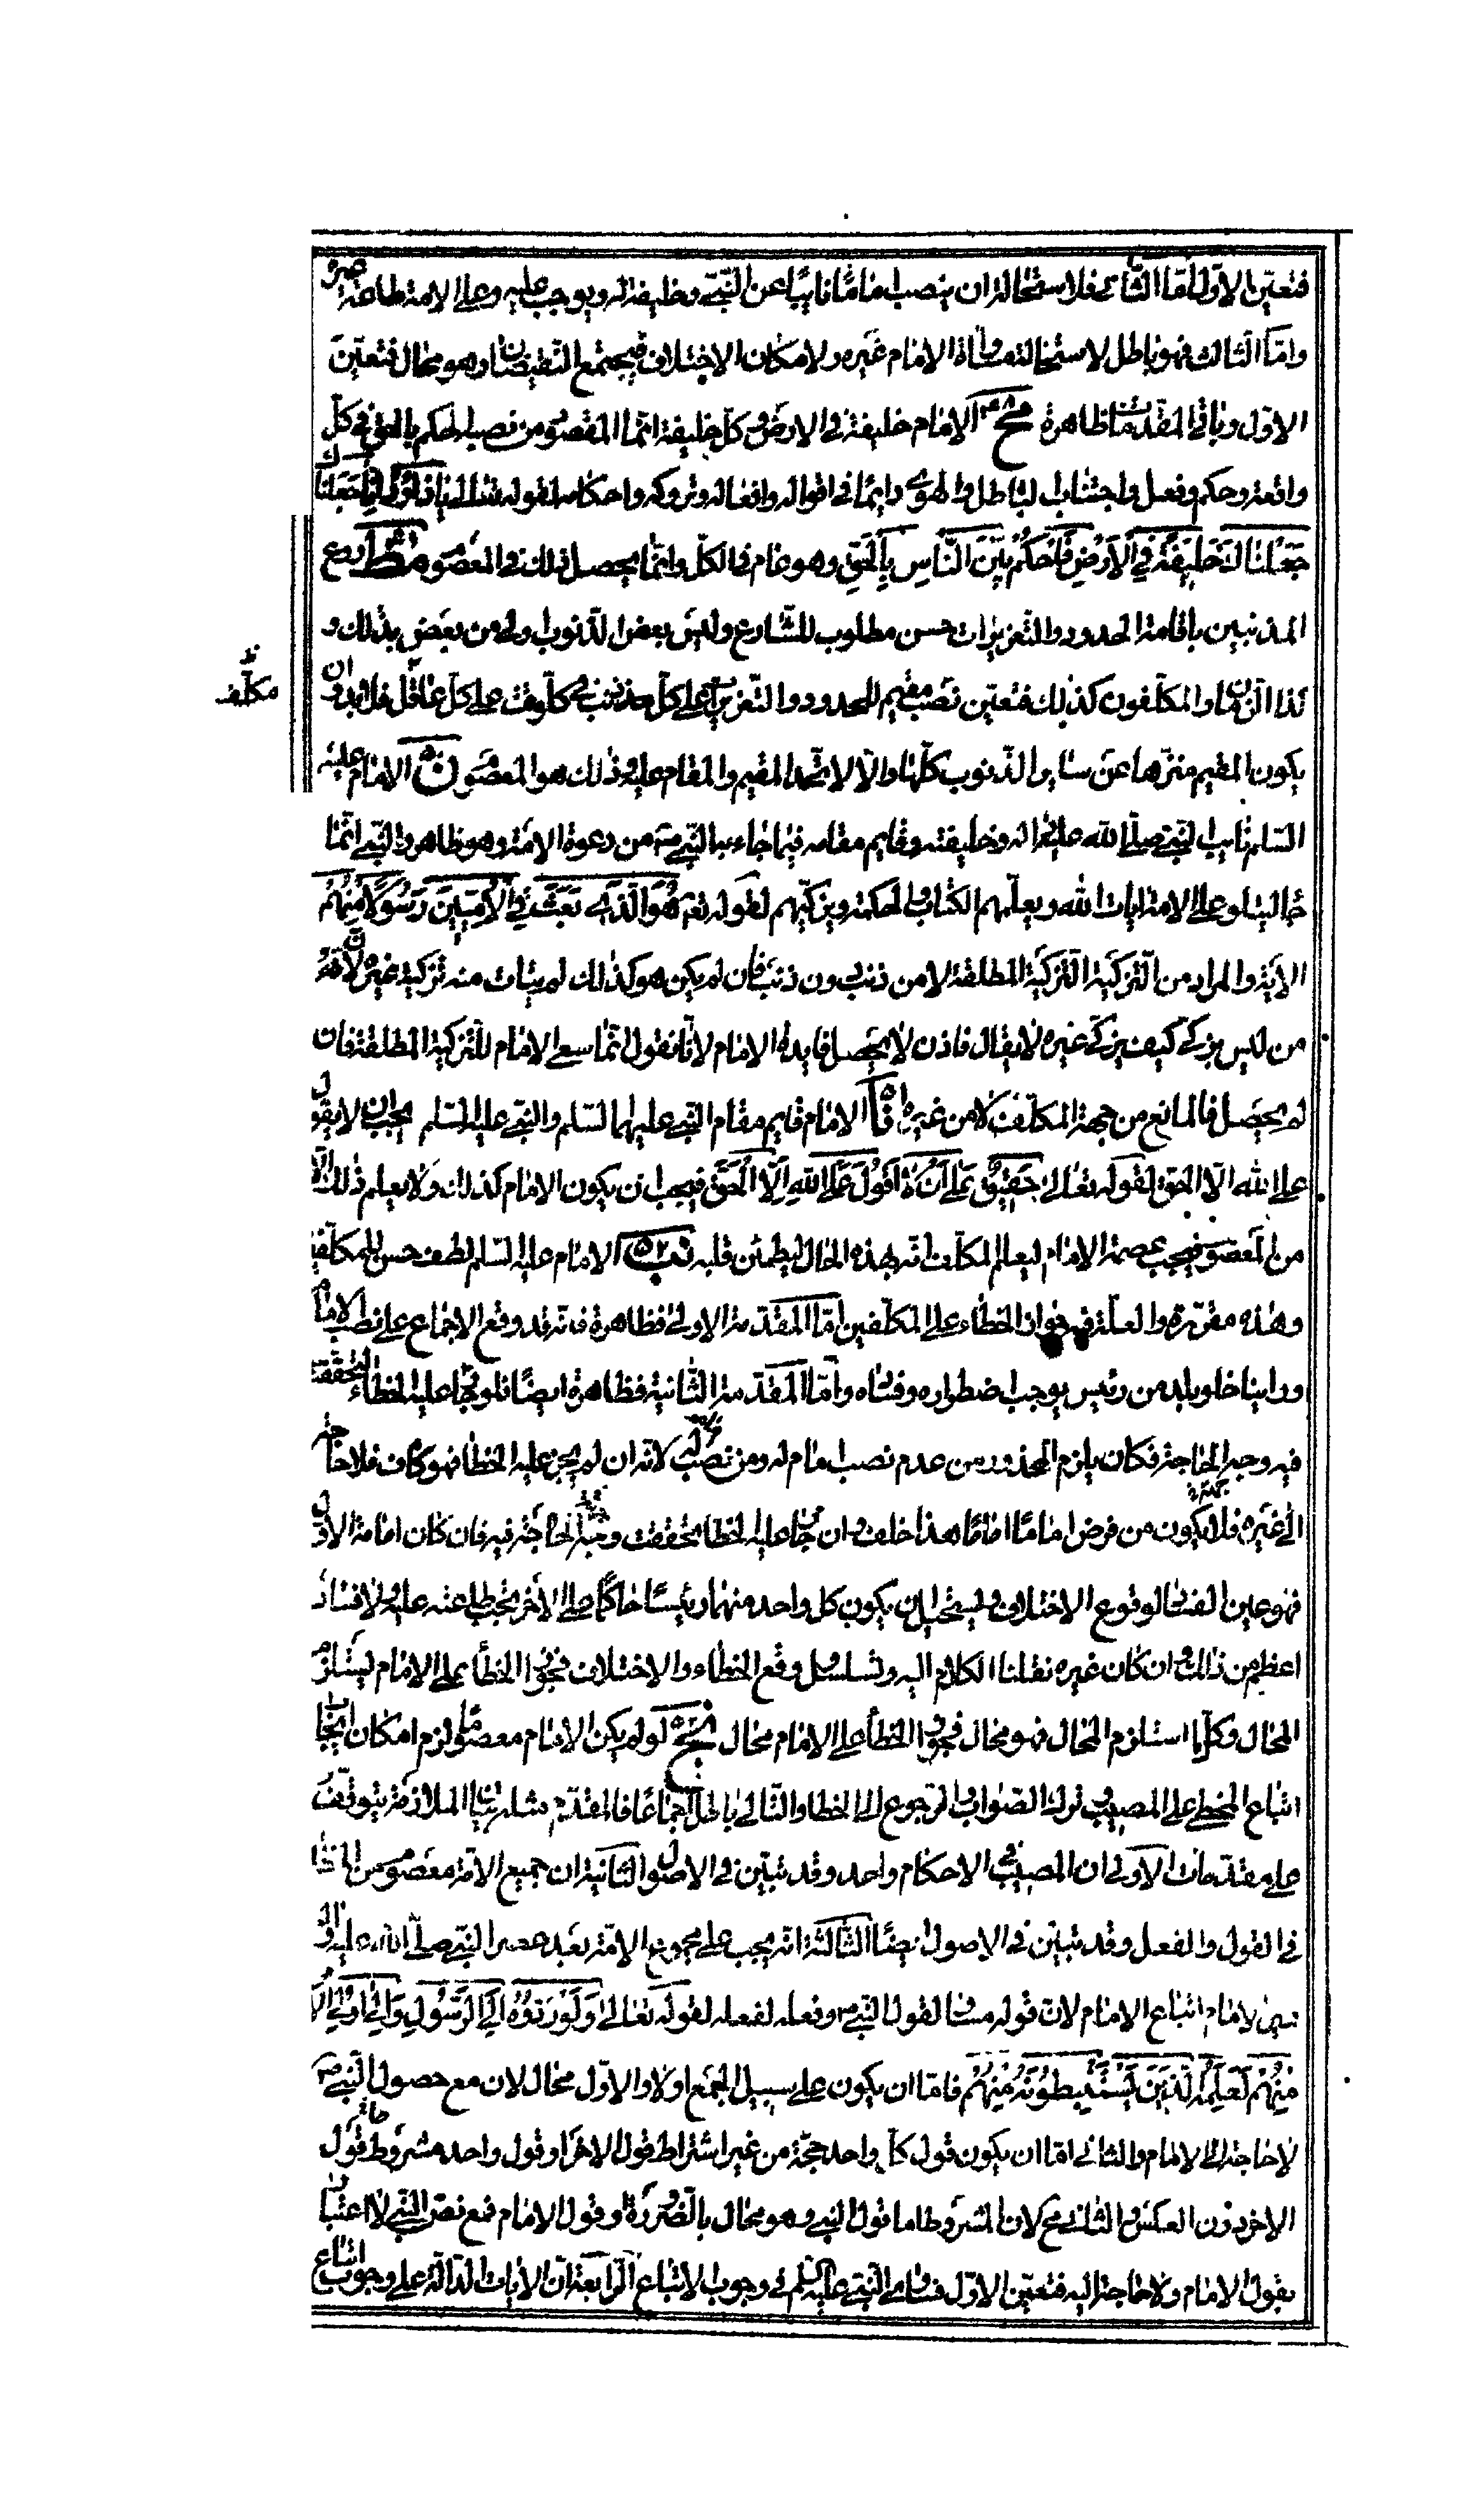 فتعيّن الاوّل امّا الثّاني فلاستحالة ان ينصب اماما نايبًا عن النّبيّ وخليفة له ويوجب عليه وعلى الامة طاعة غيره
وامّا الثالث فهو باطل لاستحالة مساواة الامام غيره ولامكان الاختلاف فيجتمع النّقيضان وهو محال فتعيّن
الاوّل وباقي المقدمات ظاهرة مح الامام خليفة في الارض وكلّ خليفة انّما المقصود من نصبه الحكم بالحق في كلّ
واقعة وحكم وفعل واجتناب الباطل والهوى دايمًا في اقواله وافعاله وتروكه واحكامه لقوله تعالى يا داود انا جعلناك
جَعَلْناكَ خَليفَةً فِي الْاَرْضِ فَاحْكُمْ بَيْنَ النَّاسِ بِالْحَقِّ وهو عام في الكلّ وانّما يحصل ذلك في المعصوم مط ردع
المذنبين باقامة الحدود والتعزيرات حسن مطلوب للشّارع وليس بعض الذنوب اولى من بعض بذلك و
كذا الازمان والمكلّفون كذلك فتعيّن نصب مقيم للحدود والتّعزيرات على كلّ مذنب في كلّ وقت على كلّ عاقل فلا بد وان
يكون المقيم منزّها عن ساير الذّنوب كلّها والّا لاتّحد المقيم والمقام عليه وذلك هو المعصوم ن الامام عليه
السّلم نايب النّبيّ صلّى الله عليه واله وخليفته وقايم مقامه فيما جاء به النّبيّ من دعوة الامّة وهو ظاهر والنّبيّ انّما
جاء ليتلو على الامة ايات الله ويعلّمهم الكتاب والحكمة ويزكّيهم لقوله تعم هُوَ الَّذي بَعَثَ فِي الْاُمِّيّينَ رَسُولًا مِنْهُمْ
الاية والمراد من التّزكية التّزكية المطلقة لا من ذنب دون ذنب فان لم يكن هو كذلك لم يتات منه تزكية غيره لان
من ليس بزكيّ كيف يزكّي غيره لا يقال فاذن لا يحصل فايدة الامام لانّا نقول انّما سعى الامام للتّزكية المطلقة فان
لم يحصل فالمانع من جهة المكلّف لا من غيره نا الامام قايم مقام النّبيّ عليهما السّلم والنّبيّ عليه السّلم يجب ان لا يقول
على الله الّا الحق لقوله تعالى حَقيقٌ عَلى اَنْ لا اَقُولَ عَلَى اللهِ اِلَّا الْحَقَّ فيجب ان يكون الامام كذلك ولا يعلم ذلك الّا
من المعصوم فيجب عصمة الامام ليعلم المكلّف انّه بهذه الحال ليطمئن قلبه نب الامام عليه السّلم لطف حسن للمكلّفين
وهذه مقرّبة والعلّة فيه جواز الخطاء على المكلّفين امّا المقدّمة الاولى فظاهرة فانّه قد وقع الاجماع على نصب الامام
وراينا خلو بلد من رئيس يوجب اضطراره وفساده وامّا المقدّمة الثّانية فظاهرة ايضًا فلو جاز عليه الخطاء لتحقّقت
فيه وجه الحاجة فكان يلزم المحذور من عدم نصب امام له ومن نصب لانّه ان لم يجز عليه الخطا فهو كاف فلا حاجة
الى غيره فلا يكون من فرض امامًا امامًا هذا خلف وان جاز عليه الخطا تحققت وجه الحاجة فيه فان كان امامة الاول
فهو عين الفساد لوقوع الاختلاف ويستحيل ان يكون كل واحد منهما رئيسًا حاكمًا على الاخر يجب طاعته عليه ولا فساد
اعظم من ذلك وان كان غيره نقلنا الكلام اليه وتسلسل وقع الخطاء والاختلاف فجواز الخطأ على الامام يستلزم
المحال وكلّما استلزم المحال فهو محال فجواز الخطأ على الامام محال نج لو لم يكن الامام معصومًا لزم امكان ايجاب
اتّباع المخطئ على المصيب وترك الصّواب والرّجوع الى الخطا والتّالي باطل اجماعًا فالمقدّم مثله بيان الملازمة يتوقّف
على مقدّمات الاولى ان المصيب في الاحكام واحد وقد تبيّن في الاصول الثّانية ان جميع الامّة معصوم من الخطا
في القول والفعل وقد تبيّن في الاصول ايضًا الثّالثة انّه يجب على مجموع الامّة بعد عصر النّبيّ صلّى الله عليه واله
سوى الامام اتّباع الامام لانّ قوله مساو لقول النّبيّ وفعله لفعله لقوله تعالى وَلَوْ رَدُّوهُ اِلَى الرَّسُولِ وَاِلى اُولِي الْاَمْرِ
مِنْهُمْ لَعَلِمَهُ الَّذينَ يَسْتَنْبِطُونَهُ مِنْهُمْ فامّا ان يكون على سبيل الجمع اولا والاوّل محال لان مع حصول النّبيّ
لا حاجة الى الامام والثاني امّا ان يكون قول كلّ واحد حجّة من غير اشتراط قول الاخر او قول واحد مشروط بقول
الاخر دون العكس والثّاني مح لان المشروط اما قول النبي وهو محال بالضّرورة او قول الامام فمع نصّ النّبيّ لا اعتبار
بقول الامام ولا حاجة اليه فتعيّن الاوّل فساوى النّبيّ عليه السّلم في وجوب الاتّباع الرّابعة انّ الايات الدّالّة على وجوب اتّباع
مكلّف